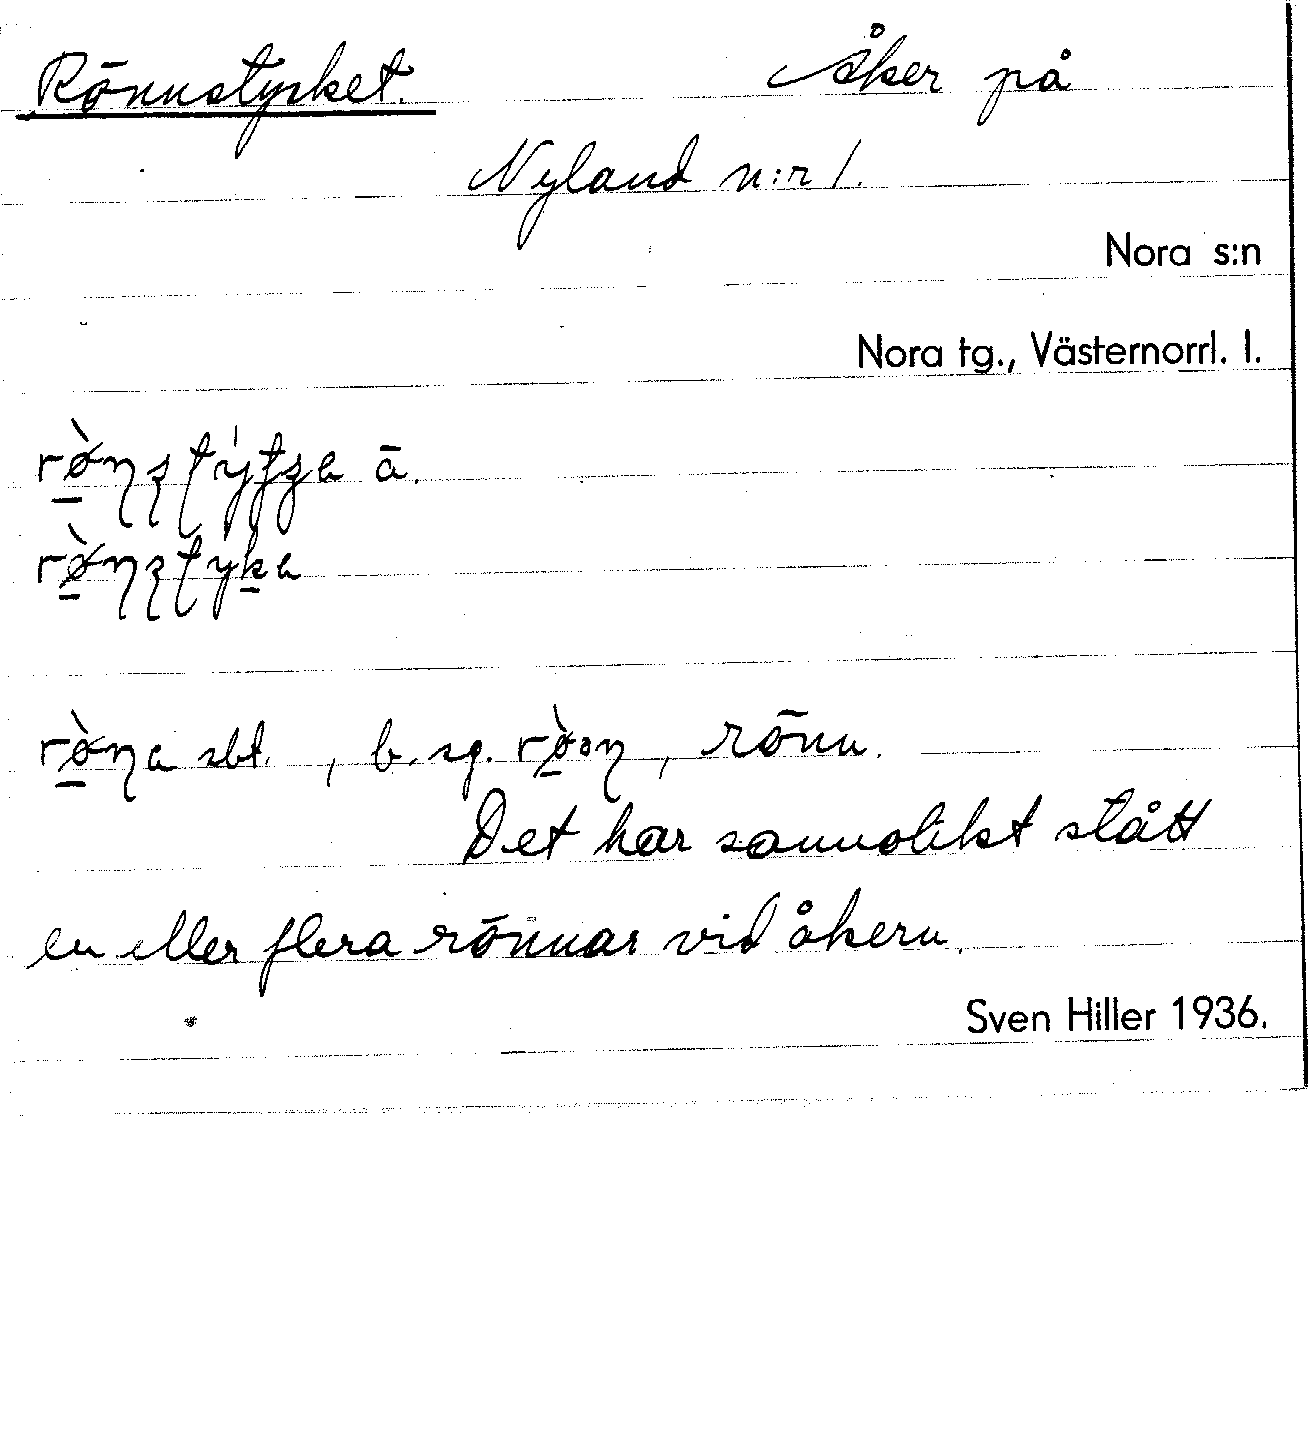 Rönnstycket. Åker på
Nyland n:r 1.
Nora s:n
Nora tg., Västernorrl. l.
ā.
sbt. , b. sg. , rönn.
Det har sannolikt stått
en eller flera rönnar vid åkern.
Sven Hiller 1936.